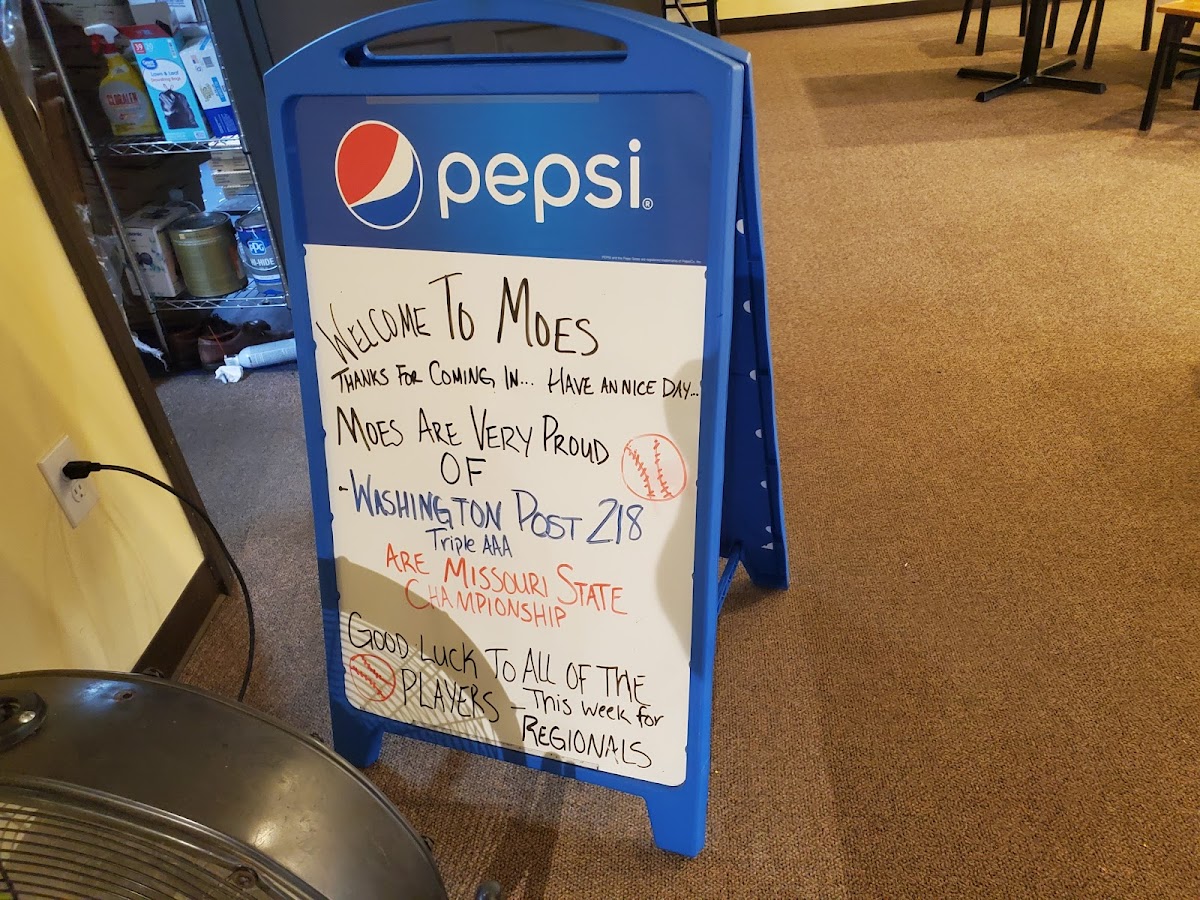 pepsi®
WELCOME TO MOES
THANKS FOR COMING IN... HAVE AN NICE DAY...
MOES ARE VERY PROUD
OF
-WASHINGTON POST 218
Triple AAA
ARE MISSOURI STATE
CHAMPIONSHIP
GOOD LUCK TO ALL OF THE
PLAYERS - This week for
REGIONALS
CLORALEN
Lawn & Leaf
PPG
HI-HIDE